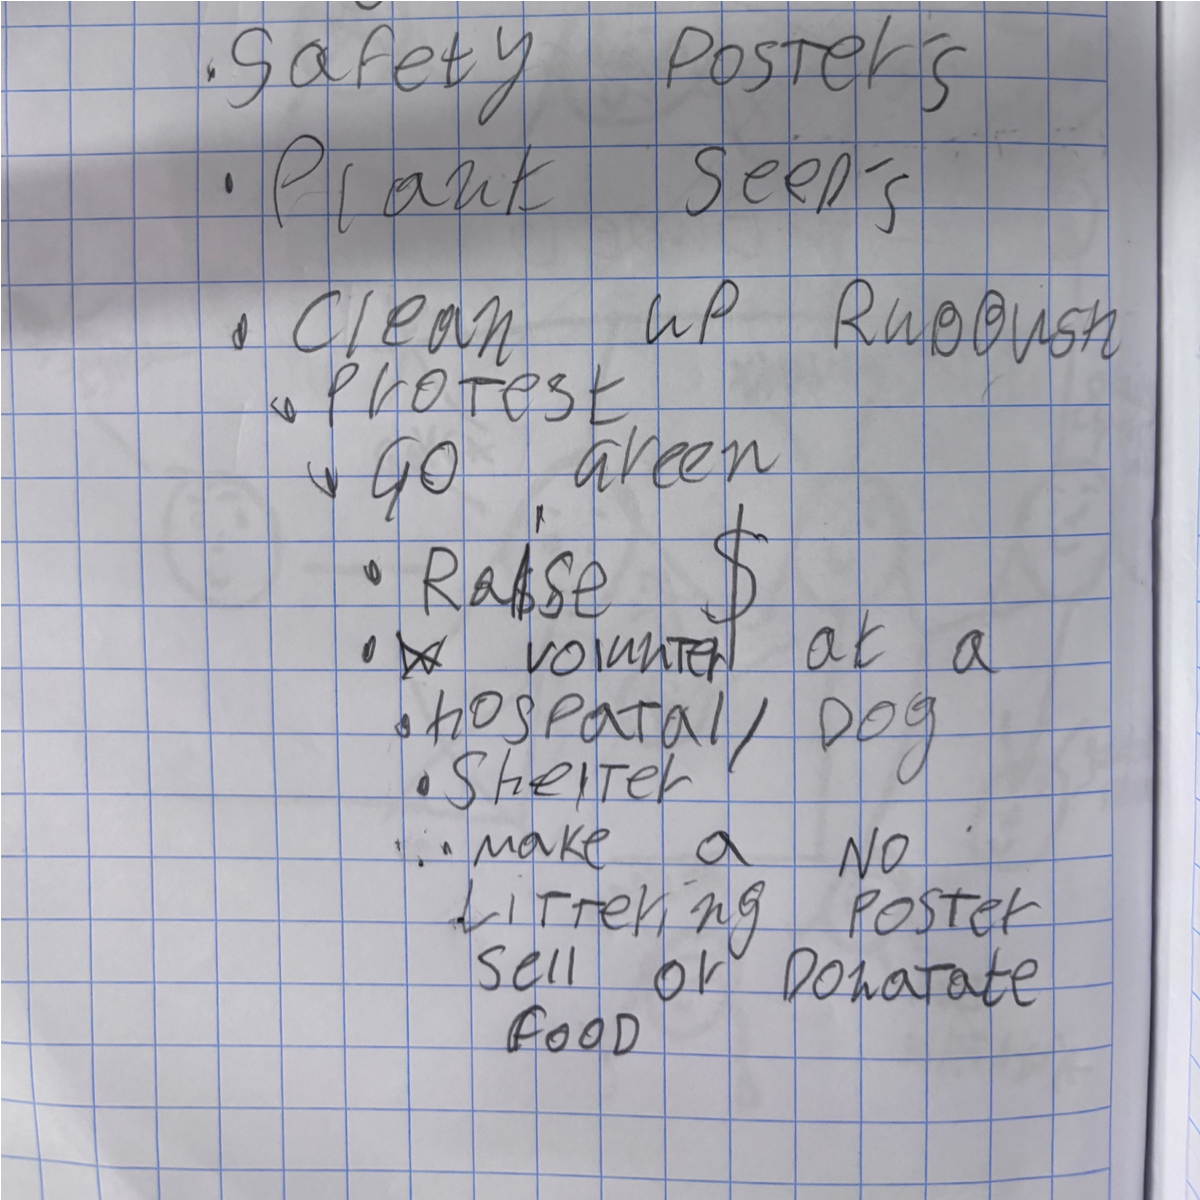 · Safety Poster's
· Plant Seed's
· Clean up Rubbush
· Protest
· Go Green
· Raise $
· volunter at a
· hospatal / Dog
· Shelter
· make a No
Littering Poster
Sell or Donatate
Food